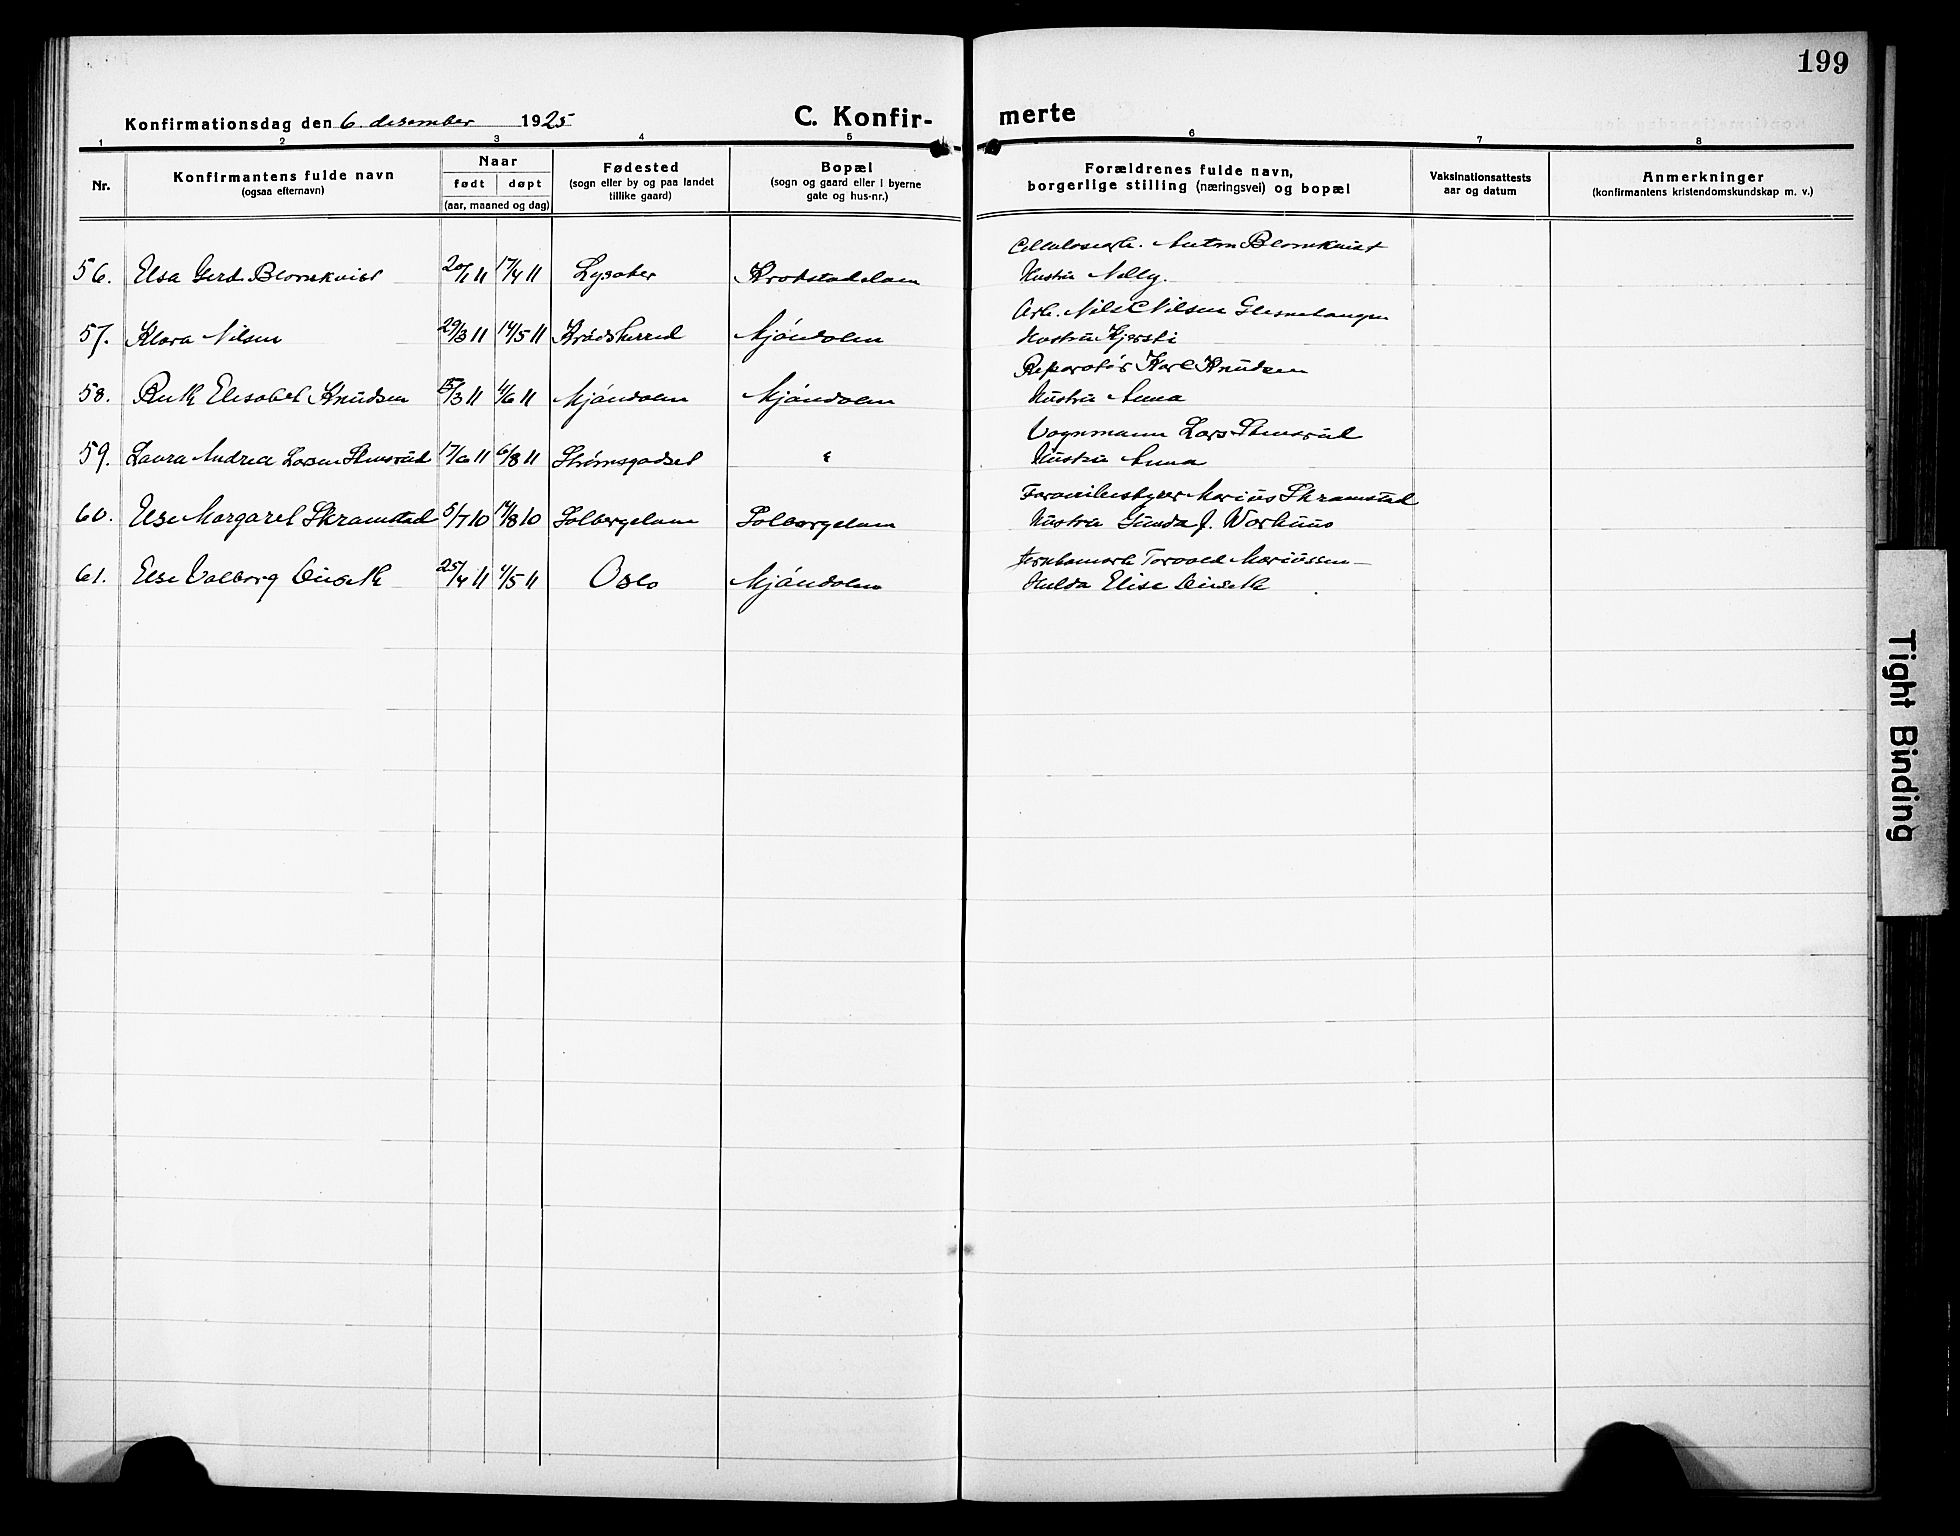 199
Konfirmationsdag den 6. desember 1925
C. Konfir-
merte
1 2 3 4 5 6 7 8
Nr.
Konfirmantens fulde navn
(ogsaa efternavn)
Naar
født døpt
(aar, maaned og dag)
Fødested
(sogn eller by og paa landet
tillike gaard)
Bopæl
(sogn og gaard eller i byerne
gate og hus-nr.)
Forældrenes fulde navn,
borgerlige stilling (næringsvei) og bopæl
Vaksinationsattests
aar og datum
Anmerkninger
(konfirmantens kristendomskundskap m. v.)
Cellulosearb. Anton Blomkvist
56. Elsa Gerd Blomkvist 20/1 11 17/4 11 Lysaker Krokstadelven Hustru Nelly.
Arb. Nils C Nilsen
57. Klara Nilsen 29/3 11 14/5 11 Krødsherred Mjøndalen Hustru Kjersti
Reparatør Karl Knudsen
58. Ruth Elisabet Knudsen 15/3 11 4/6 11 Mjøndalen Mjøndalen Hustru Anna
Vognmann Lars Stensrud
59. Laura Andrea Larsen Stensrud 17/6 11 6/8 11 Strømsgodset " Hustru Anna
Marius Skramstad
60. Else Margaret Skramstad 5/7 10 14/8 10 Solbergelven Solbergelven Hustru Gunda J. Worhuus
Jernbanearb Torvald Mariussen -
61. Else Valborg 25/4 11 4/5 11 Oslo Mjøndalen Hulda Elise
Tight Binding